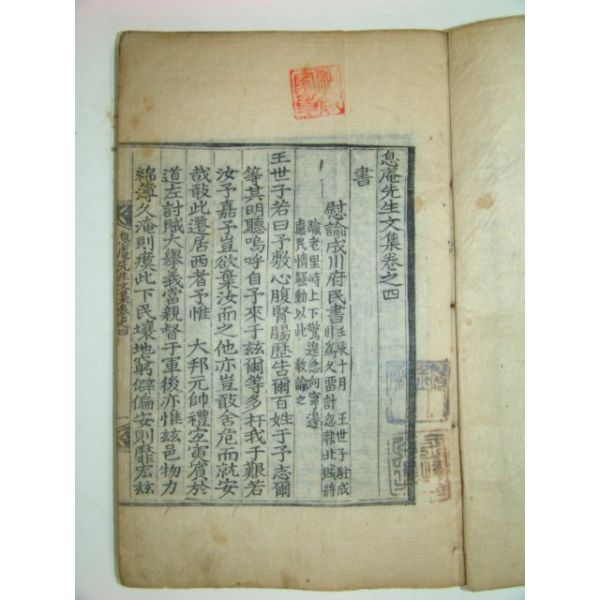 息庵先生文集卷之四
書
慰諭成川府民書
壬辰十月 王世子駐成
川爲久留計忽聞北賊將
踰老里峙上下驚遑急向寧邊
慮民情騷動以此 敎諭之
王世子若曰予敷心腹腎腸歷告爾百姓于予志爾
等其明聽嗚呼自予來于玆爾等多扞我于艱若
汝予嘉予豈欲棄汝而之他亦豈敢舍危而就安
哉敢此遷居西者予惟 大邦元帥禮宜寅賓於
道左討賊大擧義當親督于軍後亦惟玆邑物力
綿薄久淹則瘼此下民壤地窮僻偏安則難宏玆
息庵先生文集卷之四